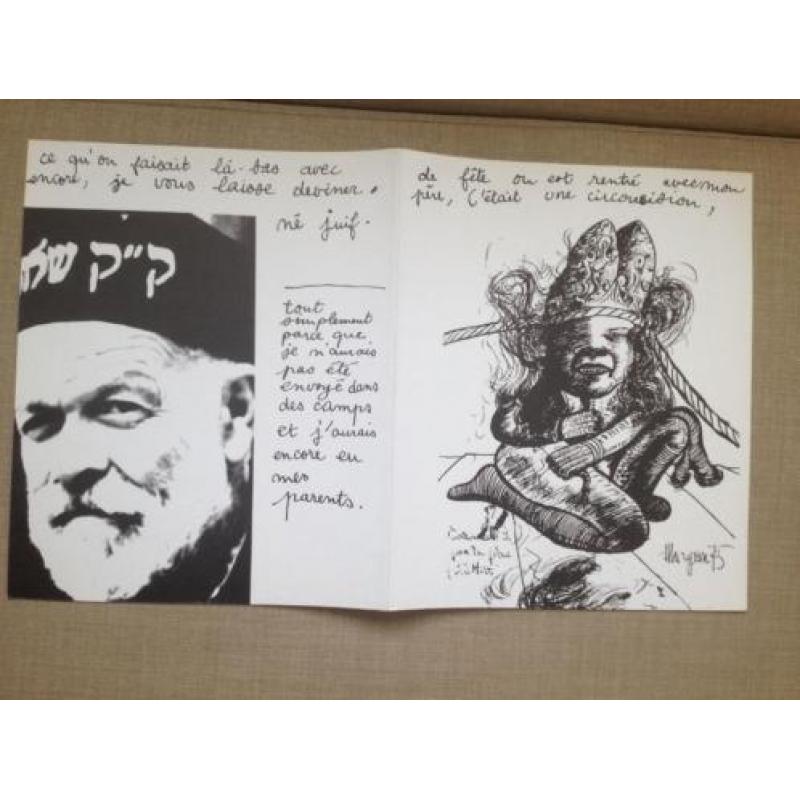 ce qu'on faisait là-bas avec
encore, je vous laisse deviner.
né juif.
ק״ק שח
tout
simplement
parce que
je n'aurais
pas été
envoyé dans
des camps
et j'aurais
encore eu
mes
parents.
de fête on est rentré avec mon
père, C'était une circoncision,
75